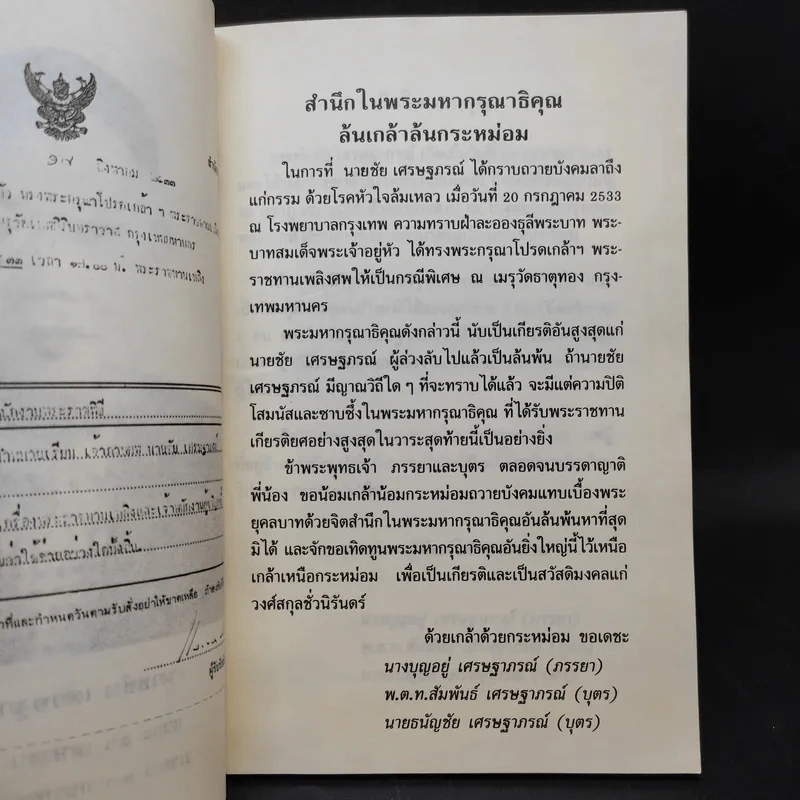 ๑๗ สิงหาคม ๒๕๓๓
ทรงพระกรุณาโปรดเกล้า ฯ
กรุงเทพมหานคร
เวลา ๑๗.๐๐ น. พระราชทานเพลิง
ที่และกำหนดวันตามรับสั่งอย่าให้ขาดเหลือ
สำนึกในพระมหากรุณาธิคุณ
ล้นเกล้าล้นกระหม่อม
ในการที่ นายชัย เศรษฐภรณ์ ได้กราบถวายบังคมลาถึง
แก่กรรม ด้วยโรคหัวใจล้มเหลว เมื่อวันที่ 20 กรกฎาคม 2533
ณ โรงพยาบาลกรุงเทพ ความทราบฝ่าละอองธุลีพระบาท พระ-
บาทสมเด็จพระเจ้าอยู่หัว ได้ทรงพระกรุณาโปรดเกล้าฯ พระ-
ราชทานเพลิงศพให้เป็นกรณีพิเศษ ณ เมรุวัดธาตุทอง กรุง-
เทพมหานคร
พระมหากรุณาธิคุณดังกล่าวนี้ นับเป็นเกียรติอันสูงสุดแก่
นายชัย เศรษฐภรณ์ ผู้ล่วงลับไปแล้วเป็นล้นพ้น ถ้านายชัย
เศรษฐภรณ์ มีญาณวิถีใด ๆ ที่จะทราบได้แล้ว จะมีแต่ความปิติ
โสมนัสและซาบซึ้งในพระมหากรุณาธิคุณ ที่ได้รับพระราชทาน
เกียรติยศอย่างสูงสุดในวาระสุดท้ายนี้เป็นอย่างยิ่ง
ข้าพระพุทธเจ้า ภรรยาและบุตร ตลอดจนบรรดาญาติ
พี่น้อง ขอน้อมเกล้าน้อมกระหม่อมถวายบังคมแทบเบื้องพระ
ยุคลบาทด้วยจิตสำนึกในพระมหากรุณาธิคุณอันล้นพ้นหาที่สุด
มิได้ และจักขอเทิดทูนพระมหากรุณาธิคุณอันยิ่งใหญ่นี้ไว้เหนือ
เกล้าเหนือกระหม่อม เพื่อเป็นเกียรติและเป็นสวัสดิมงคลแก่
วงศ์สกุลชั่วนิรันดร์
ด้วยเกล้าด้วยกระหม่อม ขอเดชะ
นางบุญอยู่ เศรษฐาภรณ์ (ภรรยา)
พ.ต.ท.สัมพันธ์ เศรษฐาภรณ์ (บุตร)
นายธนัญชัย เศรษฐาภรณ์ (บุตร)